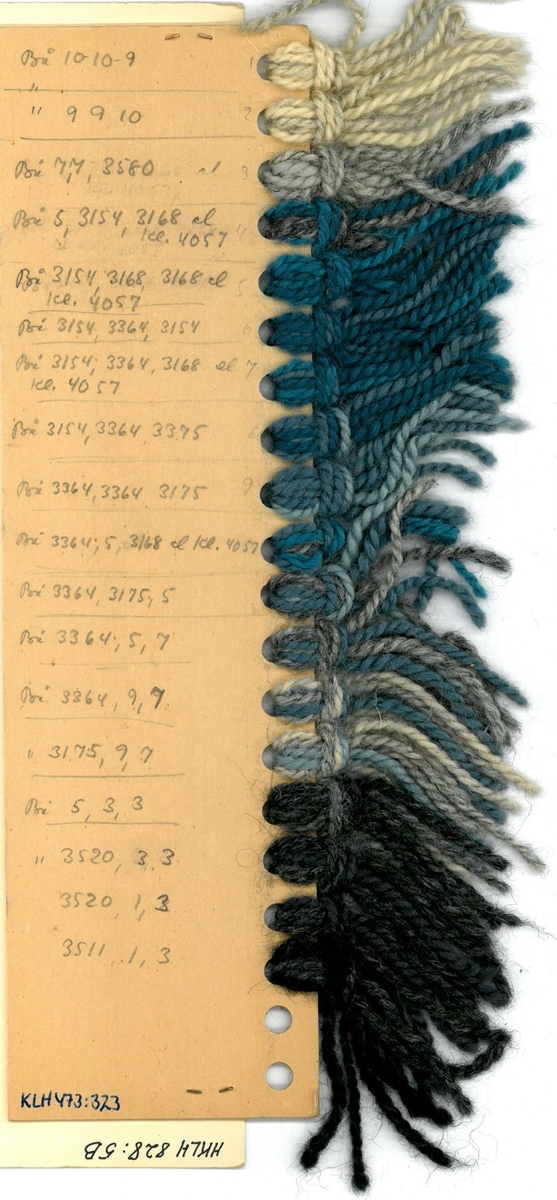 Bå 10-10-9 1
" 9 9 10 2
Bå 7,7, 3580 el 3
Bå 5, 3154, 3168 el 4
kl. 4057
Bå 3154, 3168, 3168 el 5
kl. 4057
Bå 3154, 3364, 3154 6
Bå 3154, 3364, 3168 el 7
kl. 4057
Bå 3154, 3364 3375 8
Bå 3364, 3364 3175 9
Bå 3364, 5, 3168 el kl. 4057
Bå 3364, 3175, 5
Bå 3364, 5, 7
Bå 3364, 9, 7
" 3175, 9, 7
Bå 5, 3, 3
" 3520, 3 3
3520, 1, 3
3511, 1, 3
KLH 473:323
HKLH 828:5B